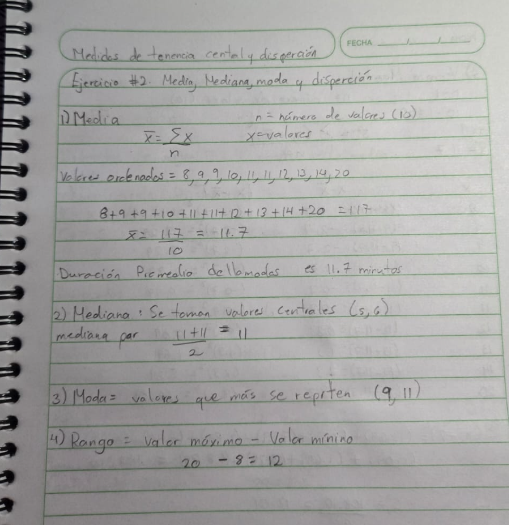 Medidas de tenencia cental y disperción
FECHA
Ejercicio #2. Media, Mediana, moda y disperción
1) Media
n = número de valores (10)
x̄ = Σx / n
x = valores
Valores ordenados = 8, 9, 9, 10, 11, 11, 12, 13, 14, 20
8+9+9+10+11+11+12+13+14+20 = 117
x̄ = 117 / 10 = 11.7
Duración Promedio de llamadas es 11.7 minutos
2) Mediana: Se toman valores centrales (5,6)
mediana par 11+11 / 2 = 11
3) Moda = valores que más se repiten (9, 11)
4) Rango = valor máximo - Valor mínino
20 - 8 = 12